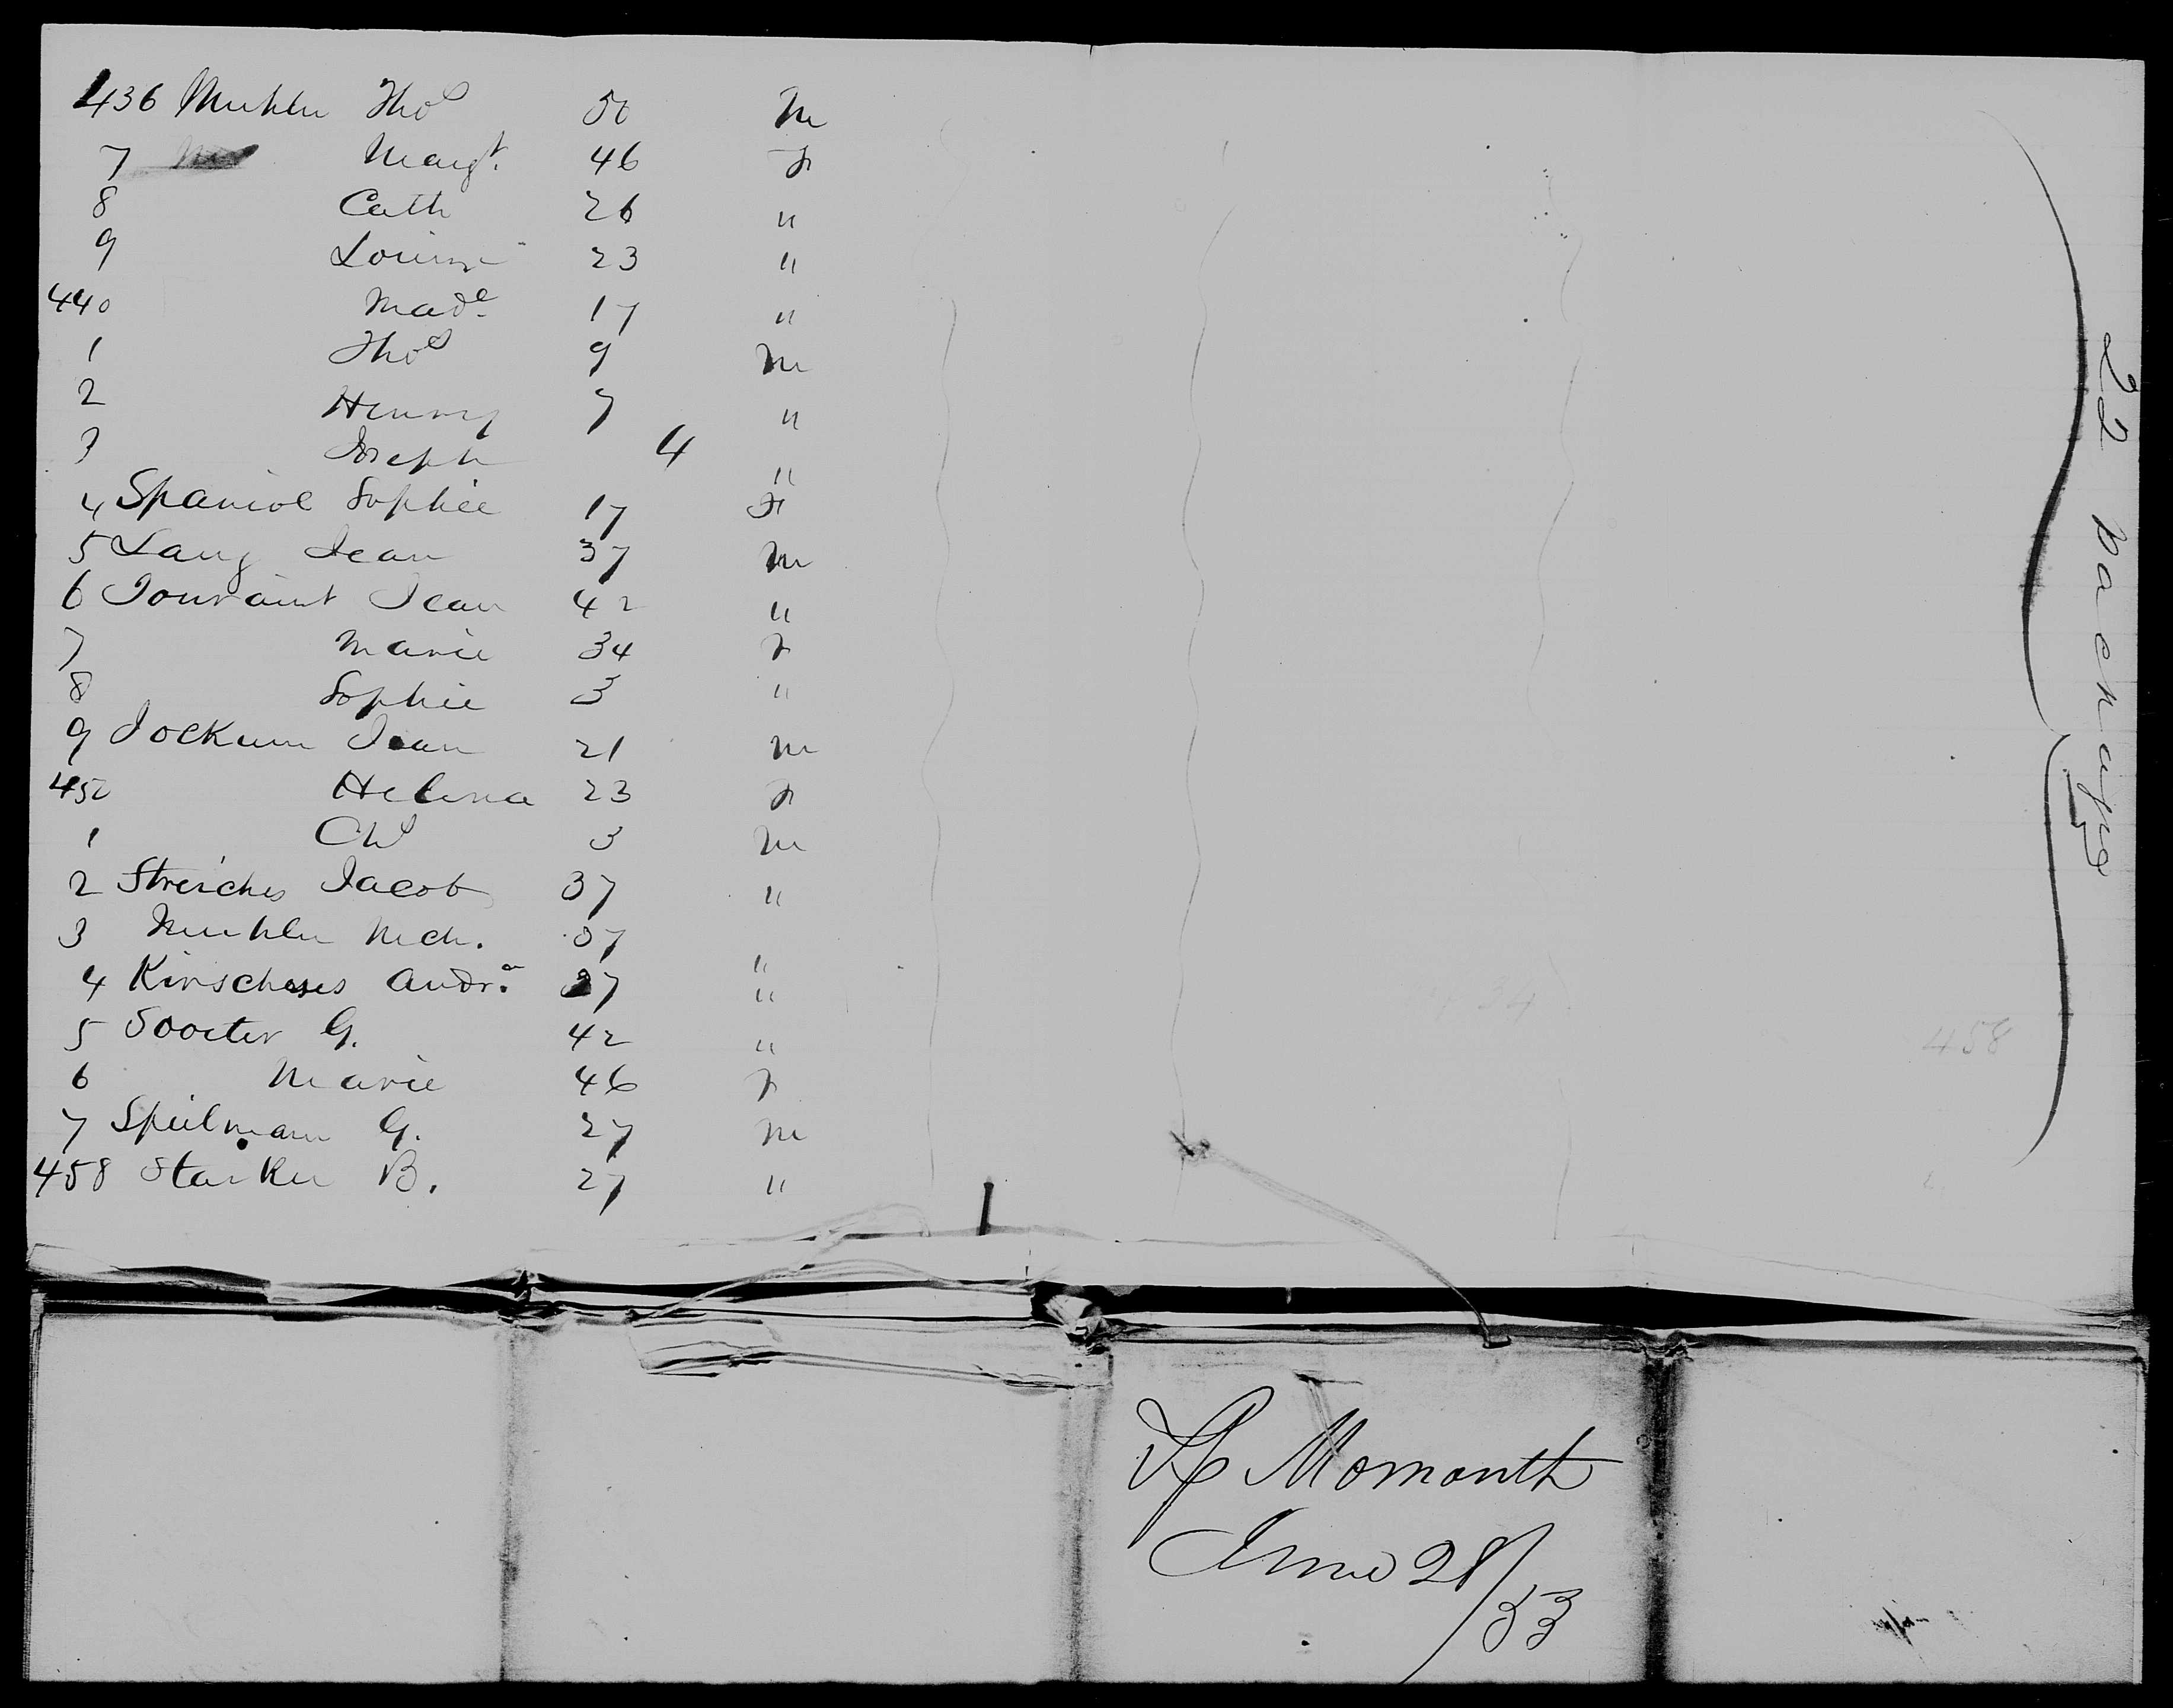 436 Muhler Tho^s 50 M
7 Marg^t. 46 F
8 Cath 26 "
9 Louise 23 "
440 Mad^e 17 "
1 Tho^s 9 M
2 Henry 7 "
3 Joseph 4 "
4 Spaniol Sophie 17 F
5 Lang Jean 37 M
6 Jean 42 "
7 Marie 34 F
8 Sophie 3 "
9 Jockum Jean 21 M
450 Helena 23 F
1 Ch^s 3 M
2 Jacob 37 "
3 Muhler 37 "
4 Andr. 27 "
5 G. 42 "
6 Marie 46 F
7 Speilmann G. 27 M
458 Starker B. 27 "
22 packages
34
458
June 28/53